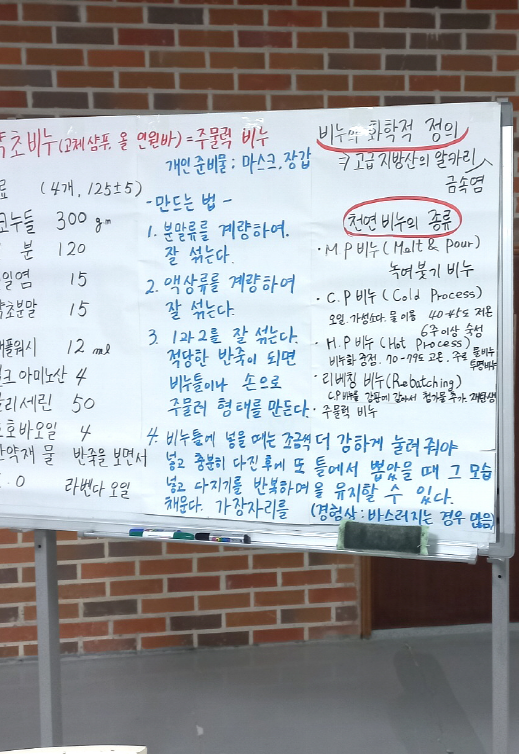 초비누(고체샴푸, 올 인원바) = 주물럭 비누
개인 준비물 ; 마스크, 장갑
(4개, 125±5)
300 gm
분 120
일염 15
초분말 15
12 ml
아미노산 4
리세린 50
호바오일 4
약재 물 반죽을 보면서
. O 라벤다 오일
- 만드는 법 -
1. 분말류를 계량하여.
잘 섞는다.
2. 액상류를 계량하여
잘 섞는다.
3. 1과 2를 잘 섞는다.
적당한 반죽이 되면
비누틀이나 손으로
주물러 형태를 만든다.
4. 비누틀에 넣을 때는 조금씩
넣고 충분히 다진 후에 또
넣고 다지기를 반복하여
채운다. 가장자리를
더 강하게 눌러줘야
틀에서 뽑았을 때 그 모습
을 유지할 수 있다.
(경험상 : 바스러지는 경우 많음)
비누의 화학적 정의
고급 지방산의 알카리
금속염
천연 비누의 종류
· M P 비누 (Melt & Pour)
녹여붓기 비누
· C. P 비누 (Cold Process)
오일. 가성소다. 물 이용 40-45도 저온
6주 이상 숙성
· H. P 비누 (Hot Process)
비누화 공정. 70-79도 고온. 주로 물비누
투명비누
· 리배칭 비누 (Rebatching)
C.P비누를 강판에 갈아서 첨가물 추가. 재탄생
· 주물럭 비누